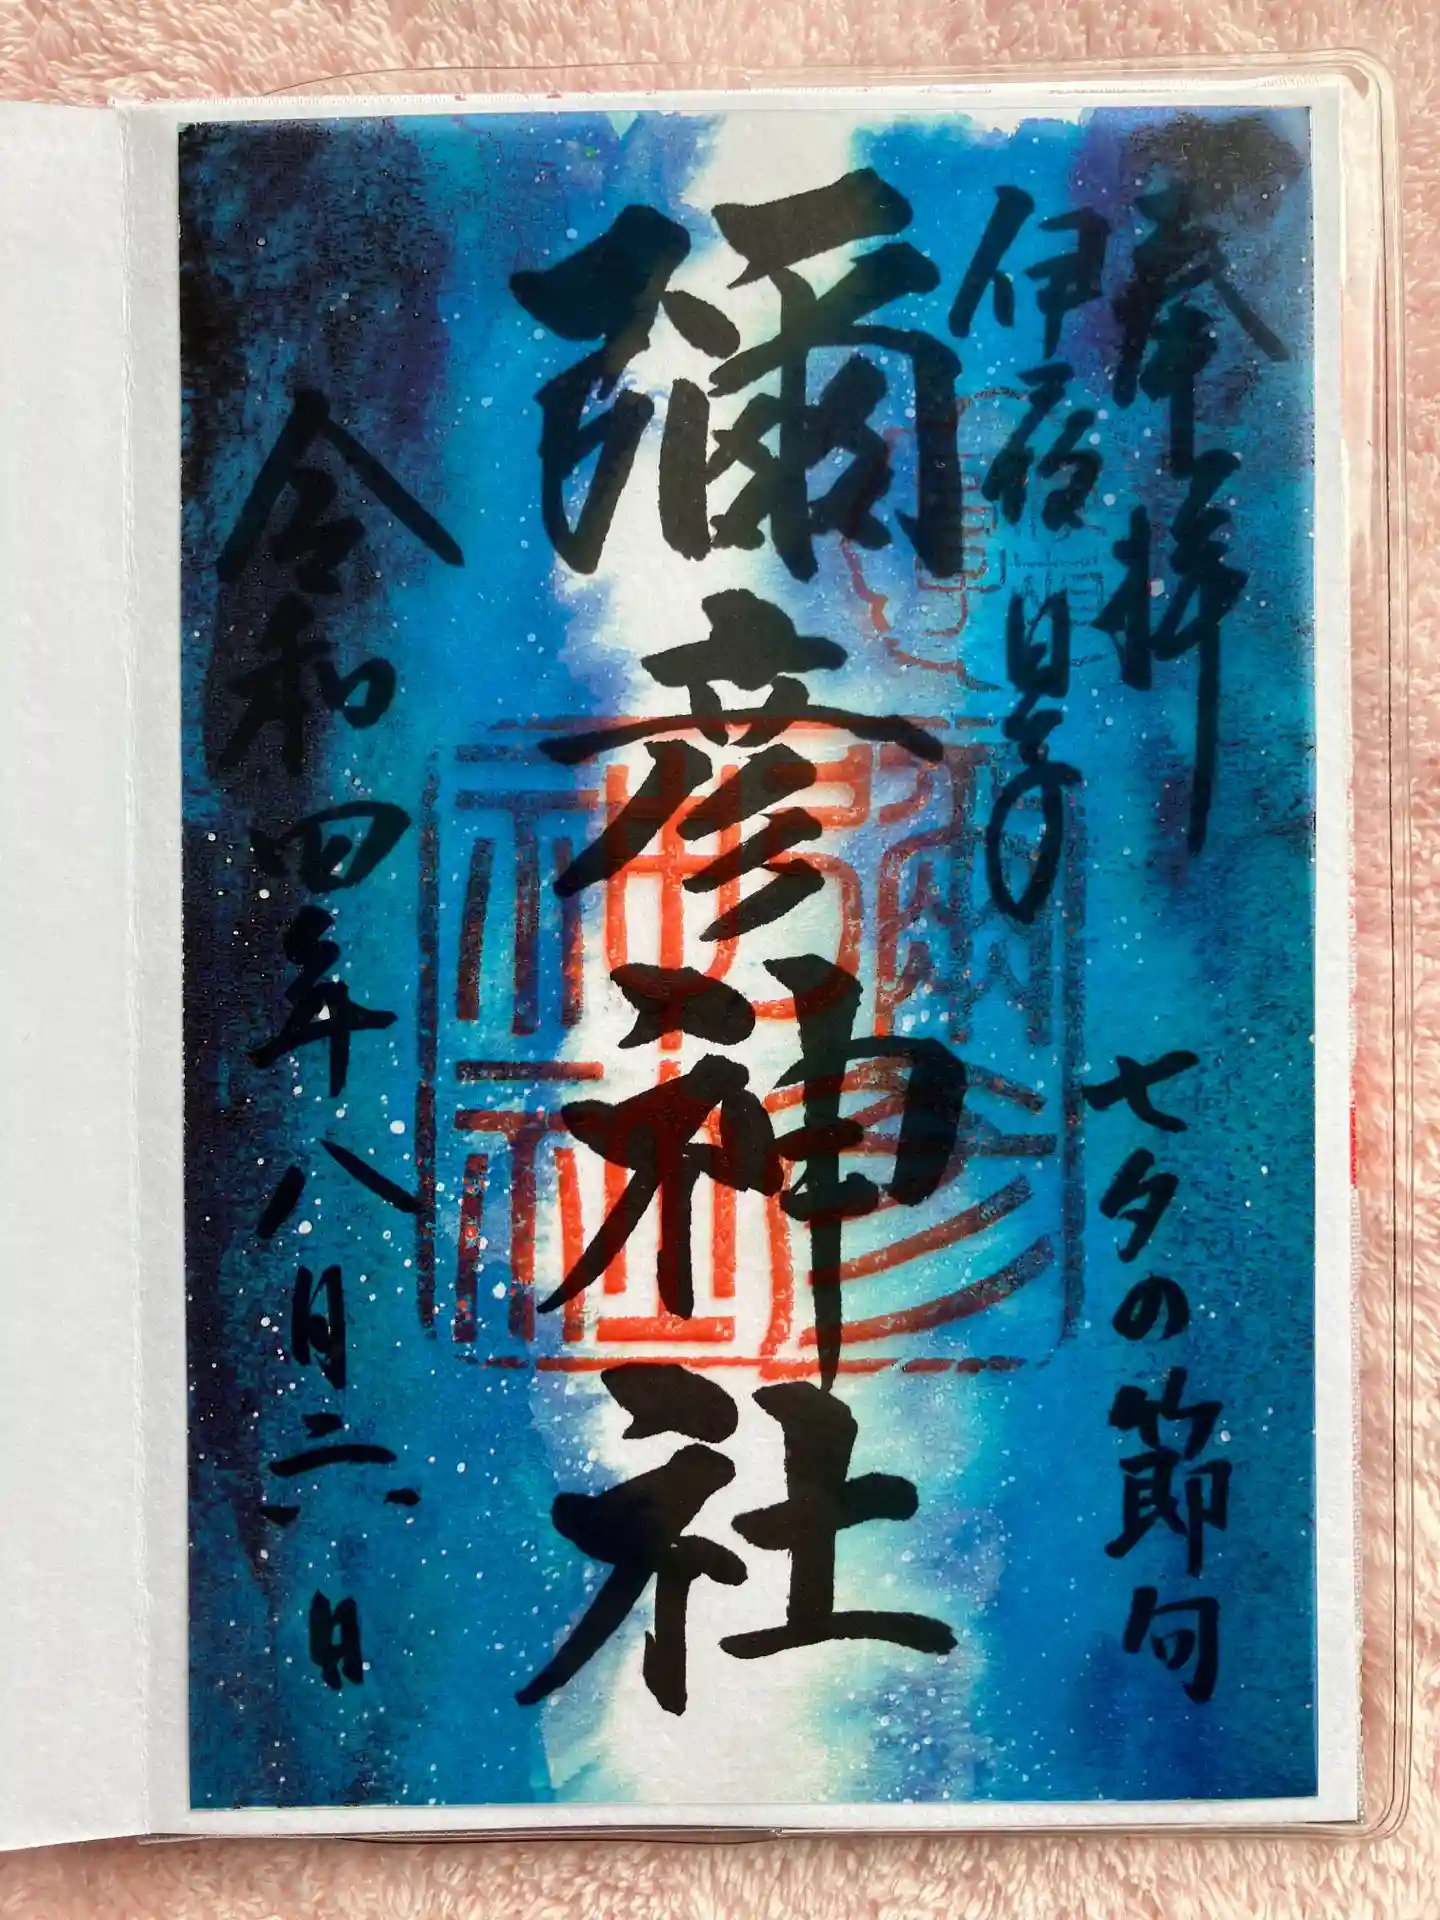 奉拝
伊夜日子
七夕の節句
彌彦神社
彌彦
神社
令和四年八月六日